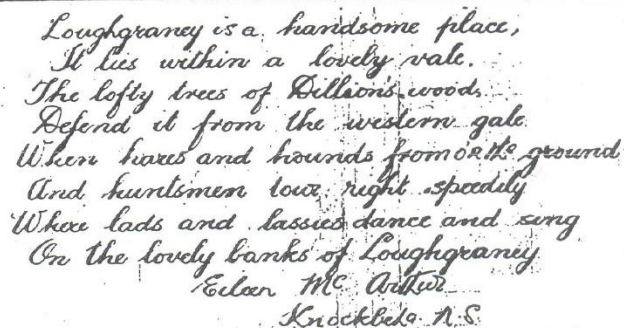 Loughgraney is a handsome place,
It lies within a lovely vale.
The lofty trees of Dillion's woods
Defend it from the western gale
When hares and hounds from o'er the ground
And huntsmen right speedily
Where lads and lassies dance and sing
On the lovely banks of Loughgraney
Eileen Mc Artur
N.S.